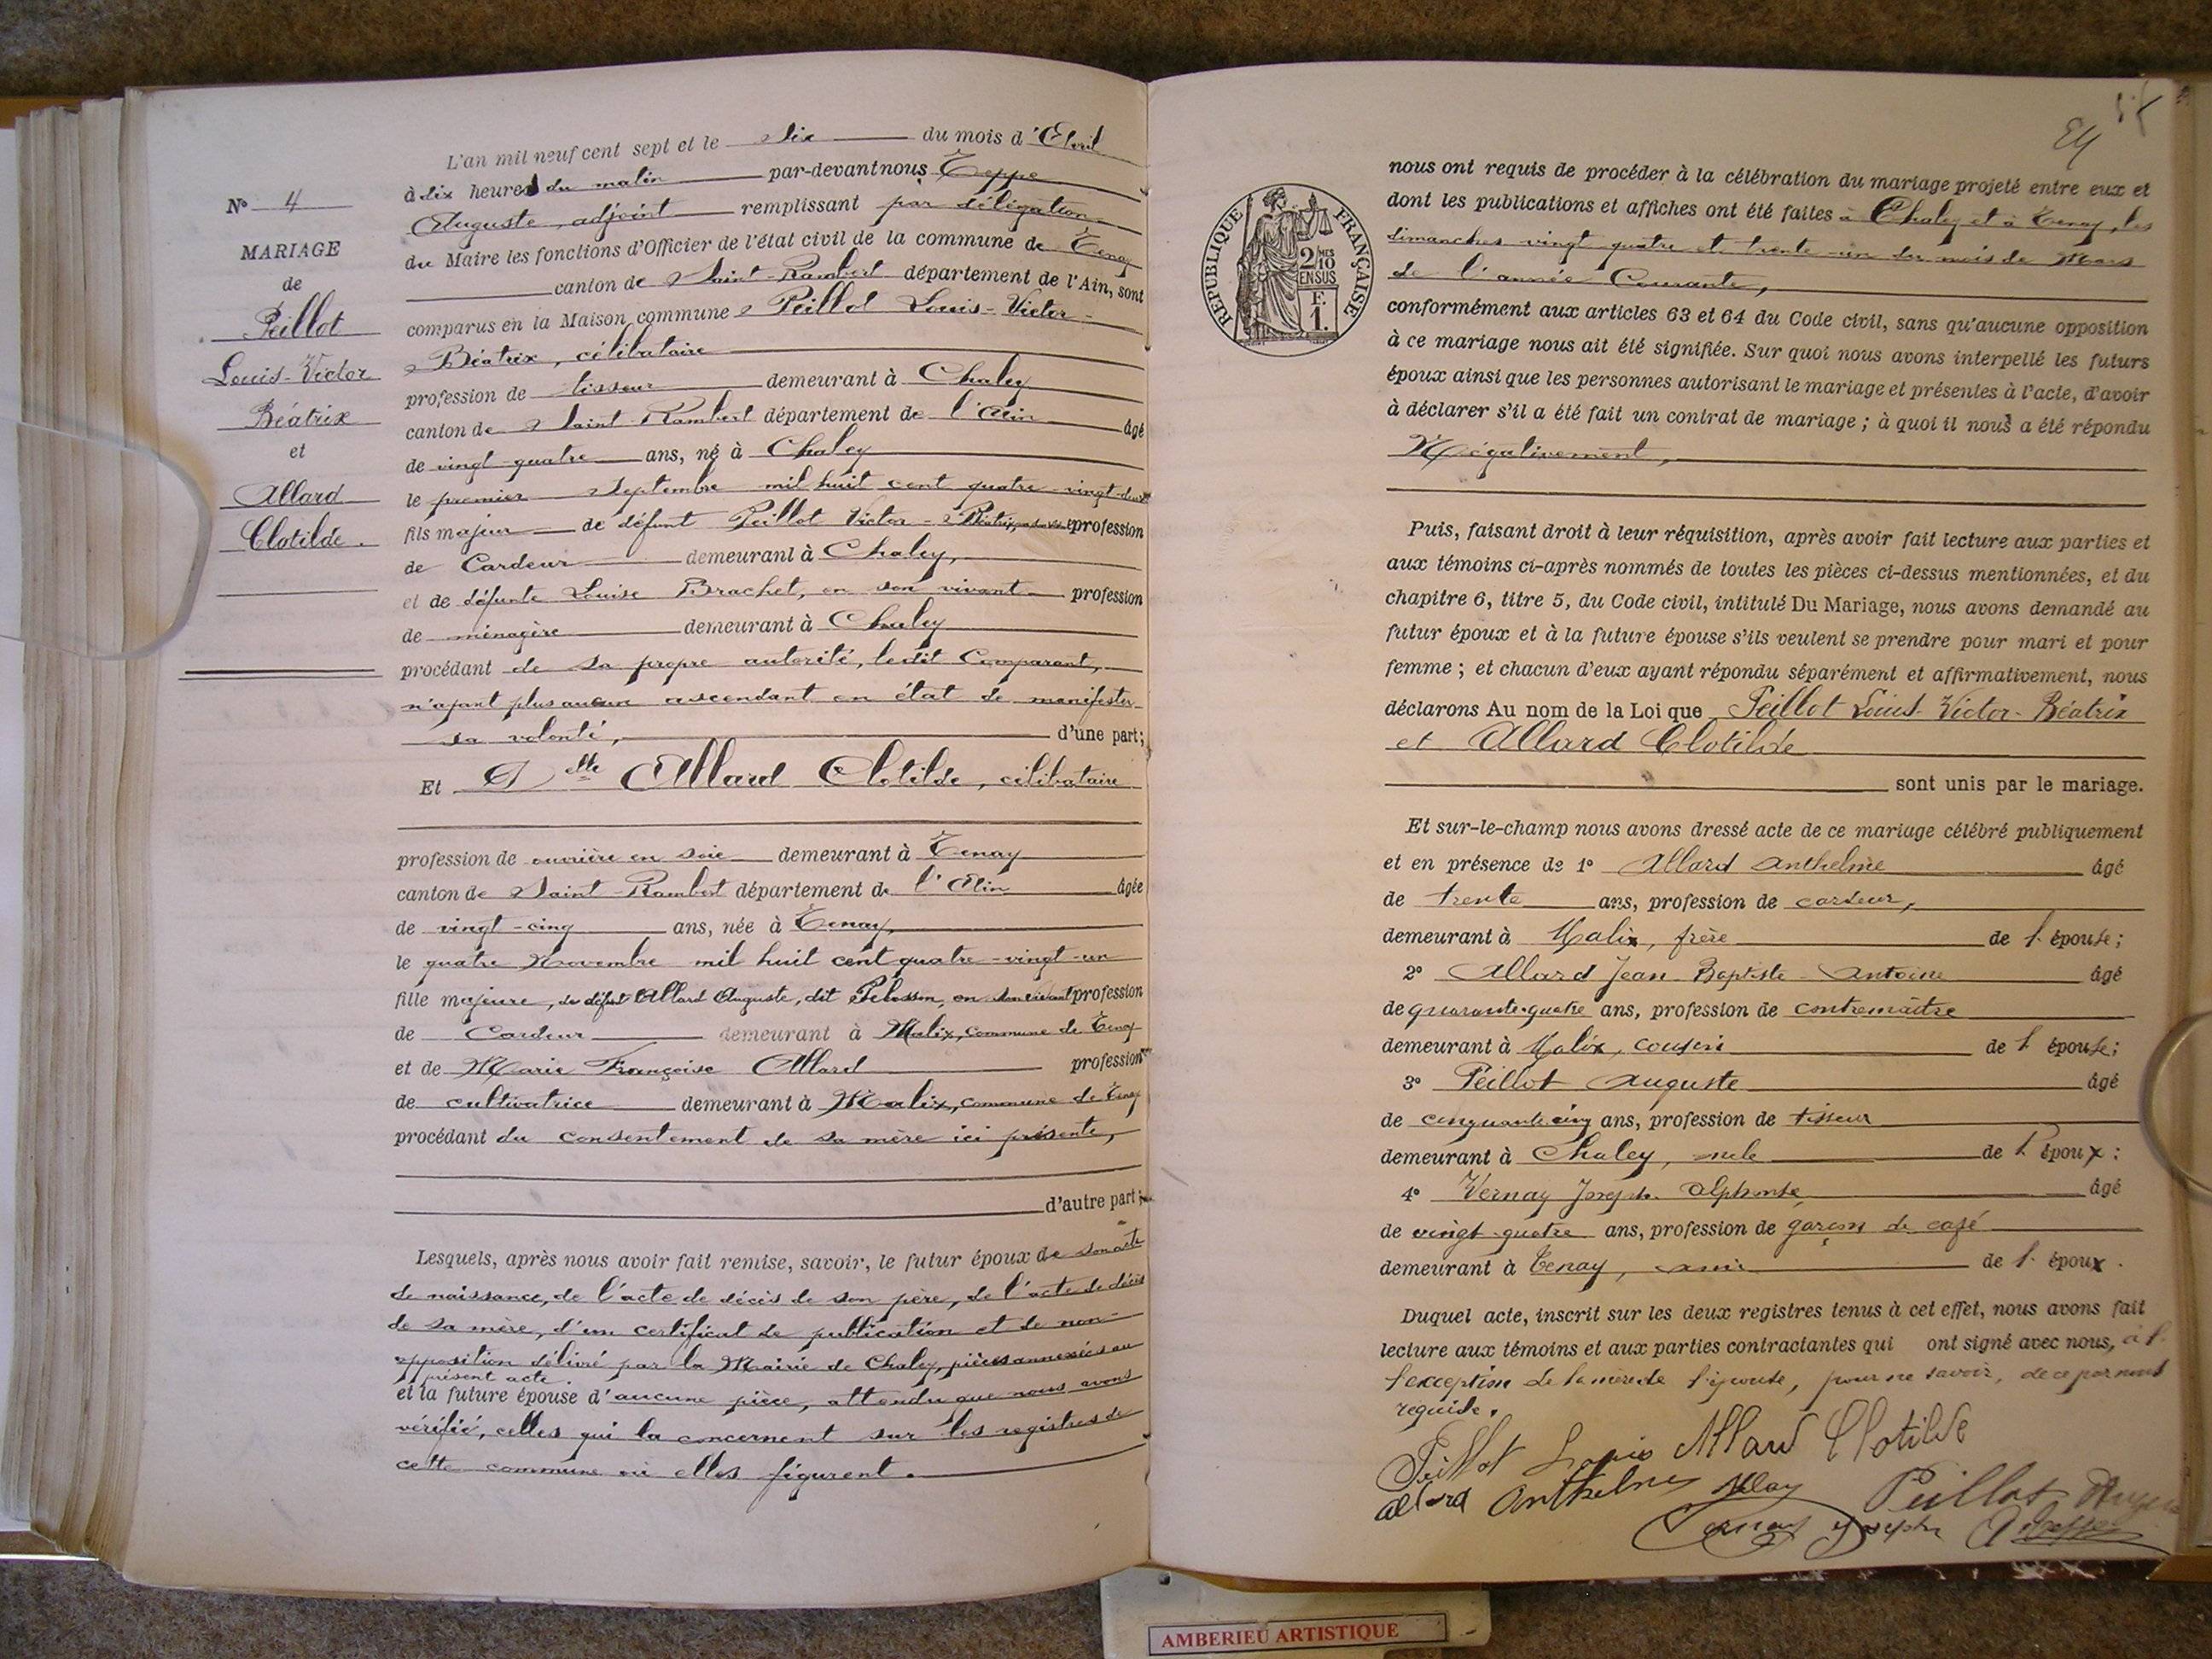 L'an mil neuf cent sept et le six du mois d'Avril
à dix heures du matin par-devant nous Teppe
Auguste, adjoint remplissant par délégation
du Maire les fonctions d'Officier de l'état civil de la commune de Tenay
canton de Saint-Rambert département de l'Ain, sont
comparus en la Maison commune Peillot Louis-Victor-
Béatrix, célibataire
profession de tisseur demeurant à Chaley
canton de Saint-Rambert département de l'Ain âgé
de vingt-quatre ans, né à Chaley
le premier Septembre mil huit cent quatre-vingt-deux
fils majeur de défunt Peillot Victor-Béatrix, profession
de Cardeur demeurant à Chaley,
et de défunte Louise Brachet, en son vivant profession
de ménagère demeurant à Chaley
procédant de sa propre autorité, ledit Comparant,
n'ayant plus aucun ascendant en état de manifester
sa volonté, d'une part;
Et Delle Allard Clotilde, célibataire
profession de ouvrière en soie demeurant à Tenay
canton de Saint-Rambert département de l'Ain âgée
de vingt-cinq ans, née à Tenay,
le quatre Novembre mil huit cent quatre-vingt-un
fille majeure, de défunt Allard Auguste, dit Pelosson, en son vivant profession
de Cardeur demeurant à Malix, commune de Tenay
et de Marie Françoise Allard profession
de cultivatrice demeurant à Malix, commune de Tenay
procédant du consentement de sa mère ici présente,
d'autre part;
Lesquels, après nous avoir fait remise, savoir, le futur époux de son acte
de naissance, de l'acte de décès de son père, de l'acte de décès
de sa mère, d'un certificat de publication et de non-
opposition délivré par la Mairie de Chaley, pièces annexées au
présent acte.
et la future épouse d'aucune pièce, attendu que nous avons
vérifié, celles qui la concernent sur les registres de
cette commune où elles figurent.
N° 4
MARIAGE
de
Peillot
Louis-Victor
Béatrix
et
Allard
Clotilde.
24
REPUBLIQUE FRANÇAISE
2/10 MES
EN SUS
F.
1.
nous ont requis de procéder à la célébration du mariage projeté entre eux et
dont les publications et affiches ont été faites à Chaley et à Tenay, les
dimanches vingt quatre et trente-un du mois de Mars
de l'année Courante,
conformément aux articles 63 et 64 du Code civil, sans qu'aucune opposition
à ce mariage nous ait été signifiée. Sur quoi nous avons interpellé les futurs
époux ainsi que les personnes autorisant le mariage et présentes à l'acte, d'avoir
à déclarer s'il a été fait un contrat de mariage; à quoi il nous a été répondu
Négativement,
Puis, faisant droit à leur réquisition, après avoir fait lecture aux parties et
aux témoins ci-après nommés de toutes les pièces ci-dessus mentionnées, et du
chapitre 6, titre 5, du Code civil, intitulé Du Mariage, nous avons demandé au
futur époux et à la future épouse s'ils veulent se prendre pour mari et pour
femme; et chacun d'eux ayant répondu séparément et affirmativement, nous
déclarons Au nom de la Loi que Peillot Louis-Victor-Béatrix
et Allard Clotilde
sont unis par le mariage.
Et sur-le-champ nous avons dressé acte de ce mariage célébré publiquement
et en présence de 1° Allard Anthelme âgé
de trente ans, profession de cardeur,
demeurant à Malix, frère de l'épouse;
2° Allard Jean-Baptiste-Antoine âgé
de quarante-quatre ans, profession de contremaître
demeurant à Malix, cousin de l'épouse;
3° Peillot Auguste âgé
de cinquante cinq ans, profession de tisseur
demeurant à Chaley, oncle de l'époux;
4° Vernay Joseph Alphonse âgé
de vingt-quatre ans, profession de garçon de café
demeurant à Tenay, ami de l'époux.
Duquel acte, inscrit sur les deux registres tenus à cet effet, nous avons fait
lecture aux témoins et aux parties contractantes qui ont signé avec nous, à l'
l'exception de la mère de l'épouse, pour ne savoir, de ce par nous
requise.
Peillot Louis Allard Clotilde
allard Anthelme Peillot
Vernay Joseph
AMBERIEU ARTISTIQUE